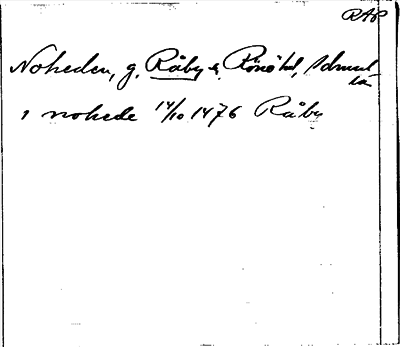 RAP
Noheden, g. Råby s. Rönö hd, Södmanl
län
i nohede 14/10 1476 Råby